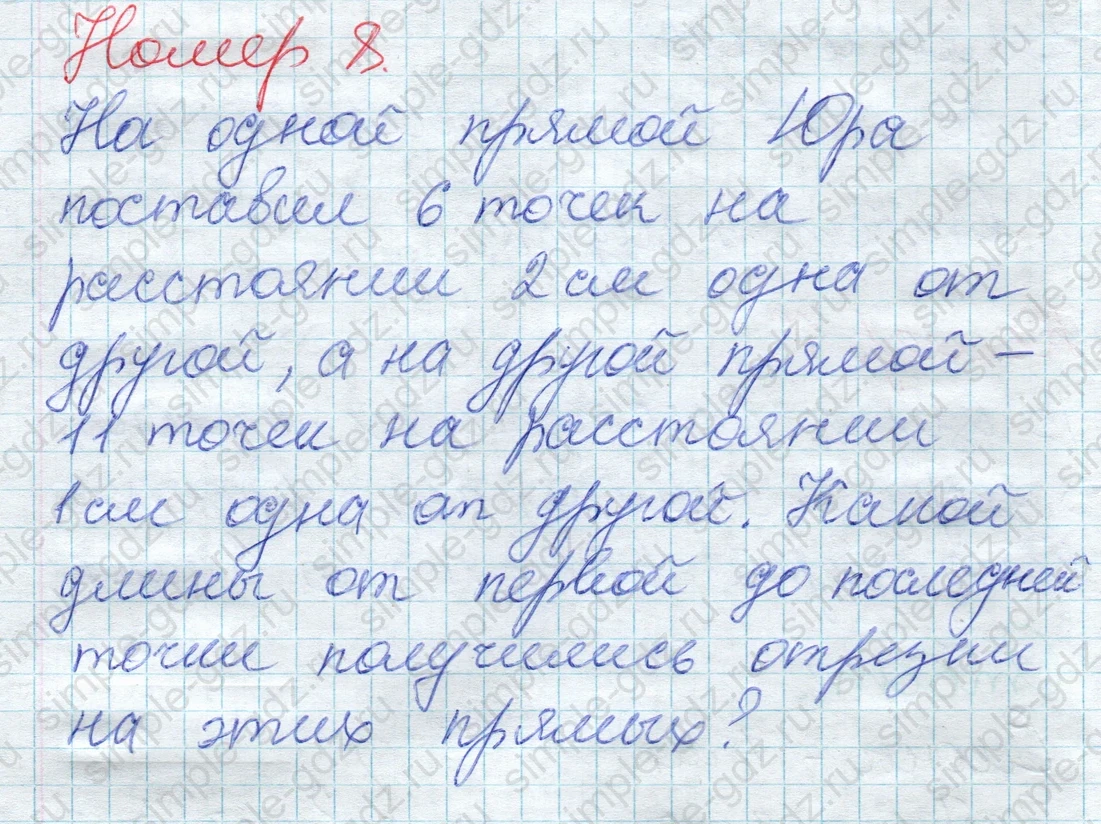 Номер 8.
На одной прямой Юра
поставил 6 точек на
расстоянии 2 см одна от
другой, а на другой прямой –
11 точек на расстоянии
1 см одна от другой. Какой
длины от первой до последней
точки получились отрезки
на этих прямых?
simple-gdz.ru